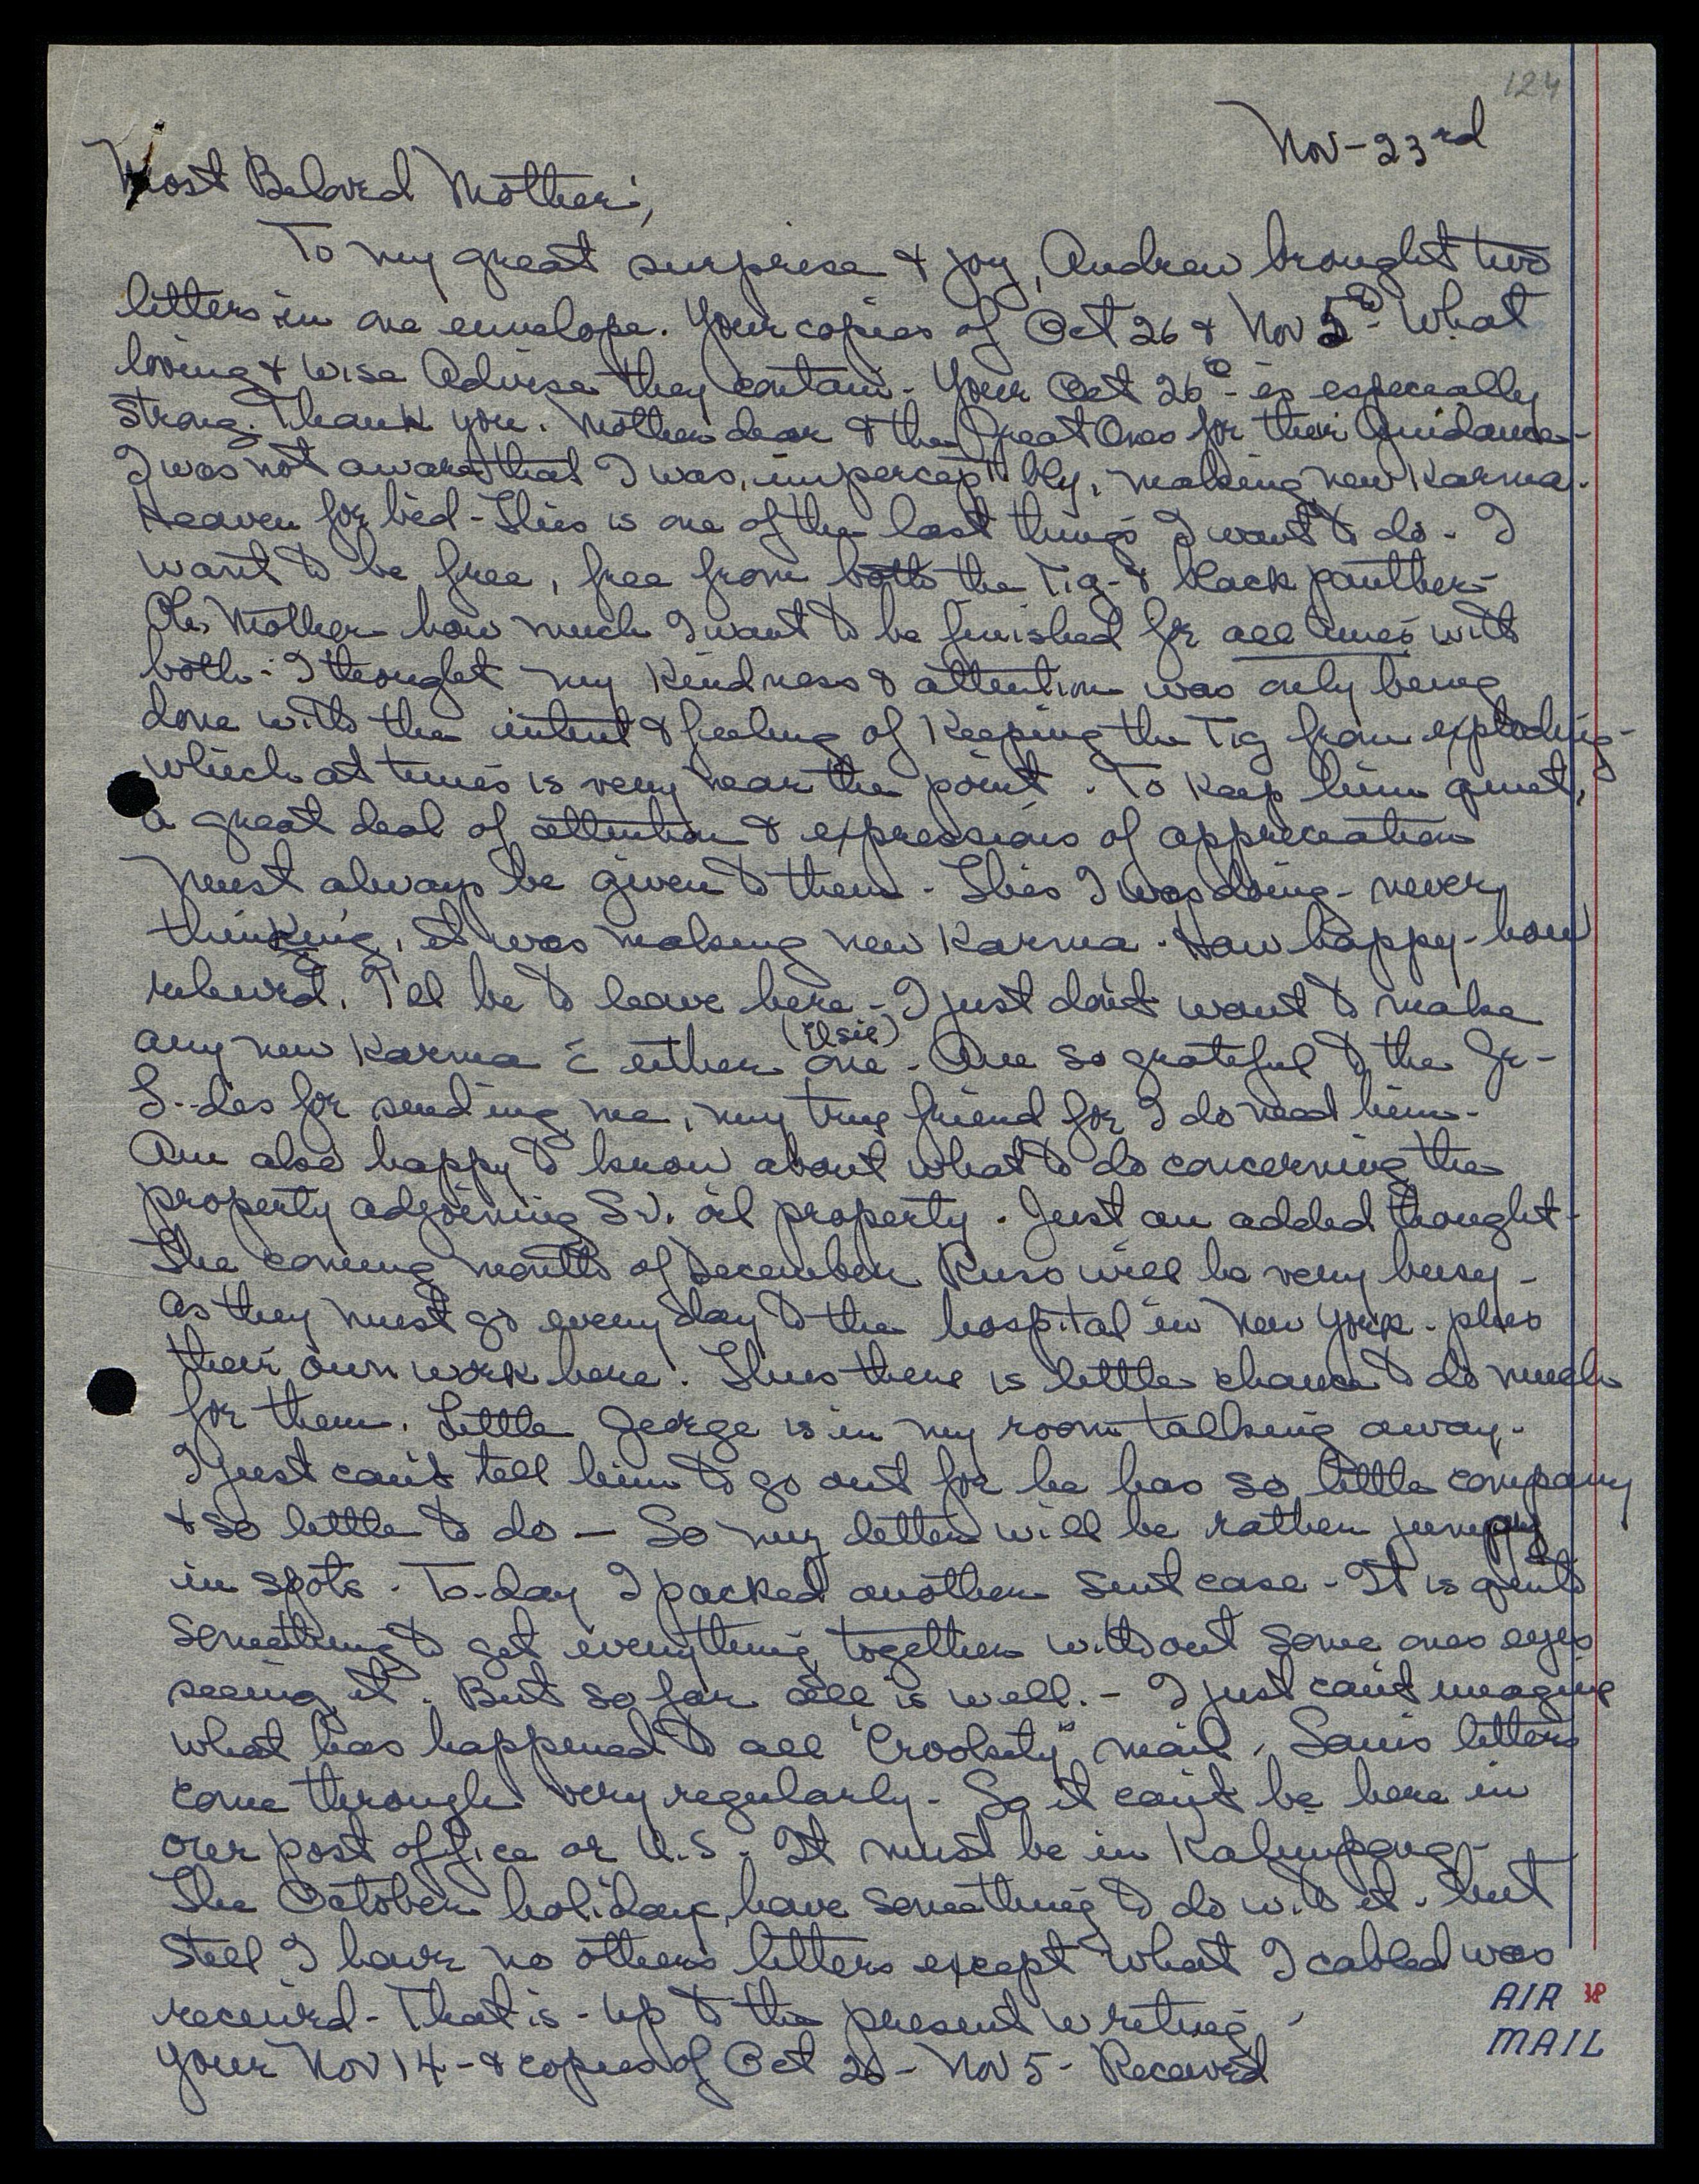 124
Nov-23rd
Most Beloved Mother,
To my great surprise & joy, Andrew brought two
letters in one envelope. Your copies of Oct 26 & Nov 5th. What
loving & wise Advise they contain. Your Oct 26th is especially
strong. Thank you. Mother dear & the Great Ones for their Guidance-
I was not aware that I was, imperceptibly, making new Karma.
Heaven for bid - This is one of the last things I want to do. I
want to be free, free from both the Tig- & black panther-
Oh, Mother how much I want to be finished for all times with
both. I thought my kindness & attention was only being
done with the intent & feeling of keeping the Tig from exploding-
which at times is very near the point. To keep him quiet,
a great deal of attention & expressions of appreciation
must always be given to them. This I was doing - never
thinking, it was making new Karma. How happy - how
relieved, I'll be to leave here - I just don't want to make
any new Karma c̄ either one (Elsie). Am so grateful to the Gr-
L--des for sending me, my true friend for I do need him-
Am also happy to know about what to do concerning the
property adjoining S.V. oil property. Just an added thought-
The coming month of December Ruso will be very busy-
as they must go every day to the hospital in New York - plus
their own work here. Thus there is little chance to do much
for them. Little George is in my room talking away.
I just can't tell him to go out for he has so little company
& so little to do - So my letter will be rather jumpy
in spots. To-day I packed another suit case - It is quite
something to get everything together without some ones eyes
seeing it. But so far all is well. - I just can't imagine
what has happened to all "Crookety" mail. Sam's letters
come through very regularly - So it can't be here in
our post office or U.S. It must be in Kalimpong-
The October holidays, have something to do with it - but
still I have no others letters except what I cabled was
received - That is - up to the present writing
Your Nov 14 - & copies of Oct 26 - Nov 5 - Received
AIR
MAIL